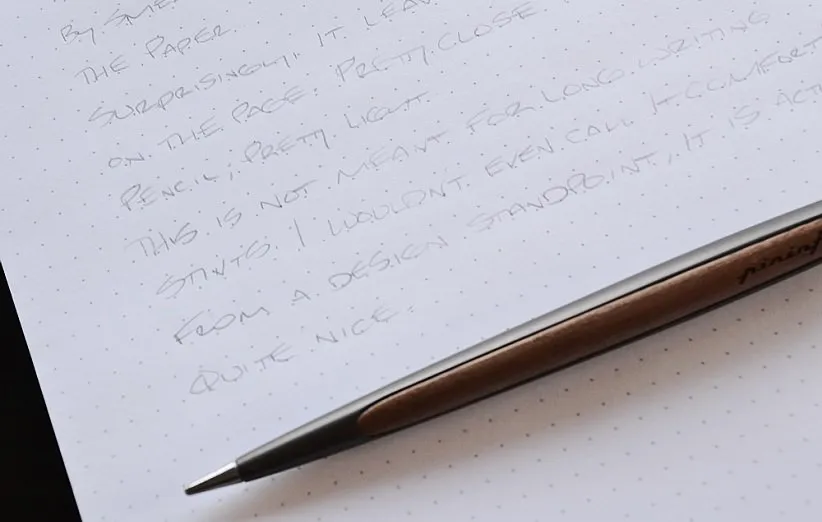 BY SME
THE PAPER.
SURPRISINGLY, IT LEAV
ON THE PAGE. PRETTY CLOSE
PENCIL, PRETTY LIGHT.
THIS IS NOT MEANT FOR LONG WRITING
STINTS. I WOULDN'T EVEN CALL IT COMFORT
FROM A DESIGN STANDPOINT, IT IS ACT
QUITE NICE.
pininf